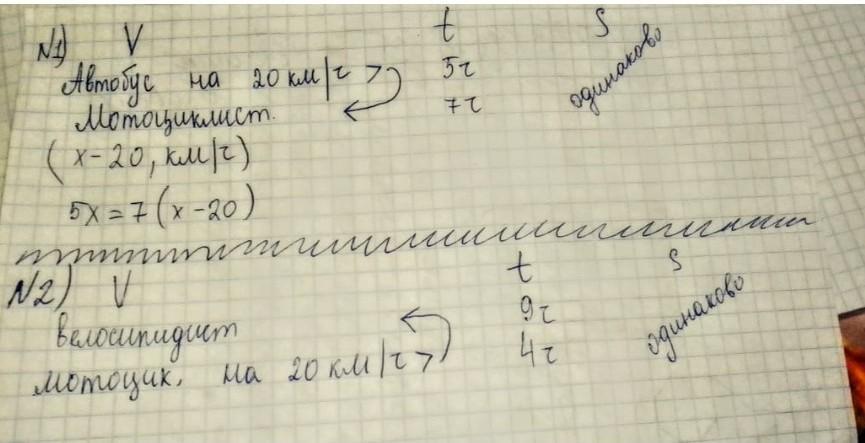 N1) V t S
Автобус на 20 км/ч > 5ч одинаково
Мотоциклист. 7ч
(x-20, км/ч)
5x=7(x-20)
N2) V t S
Велосипидист 9ч одинаково
мотоцик. на 20 км/ч > 4ч